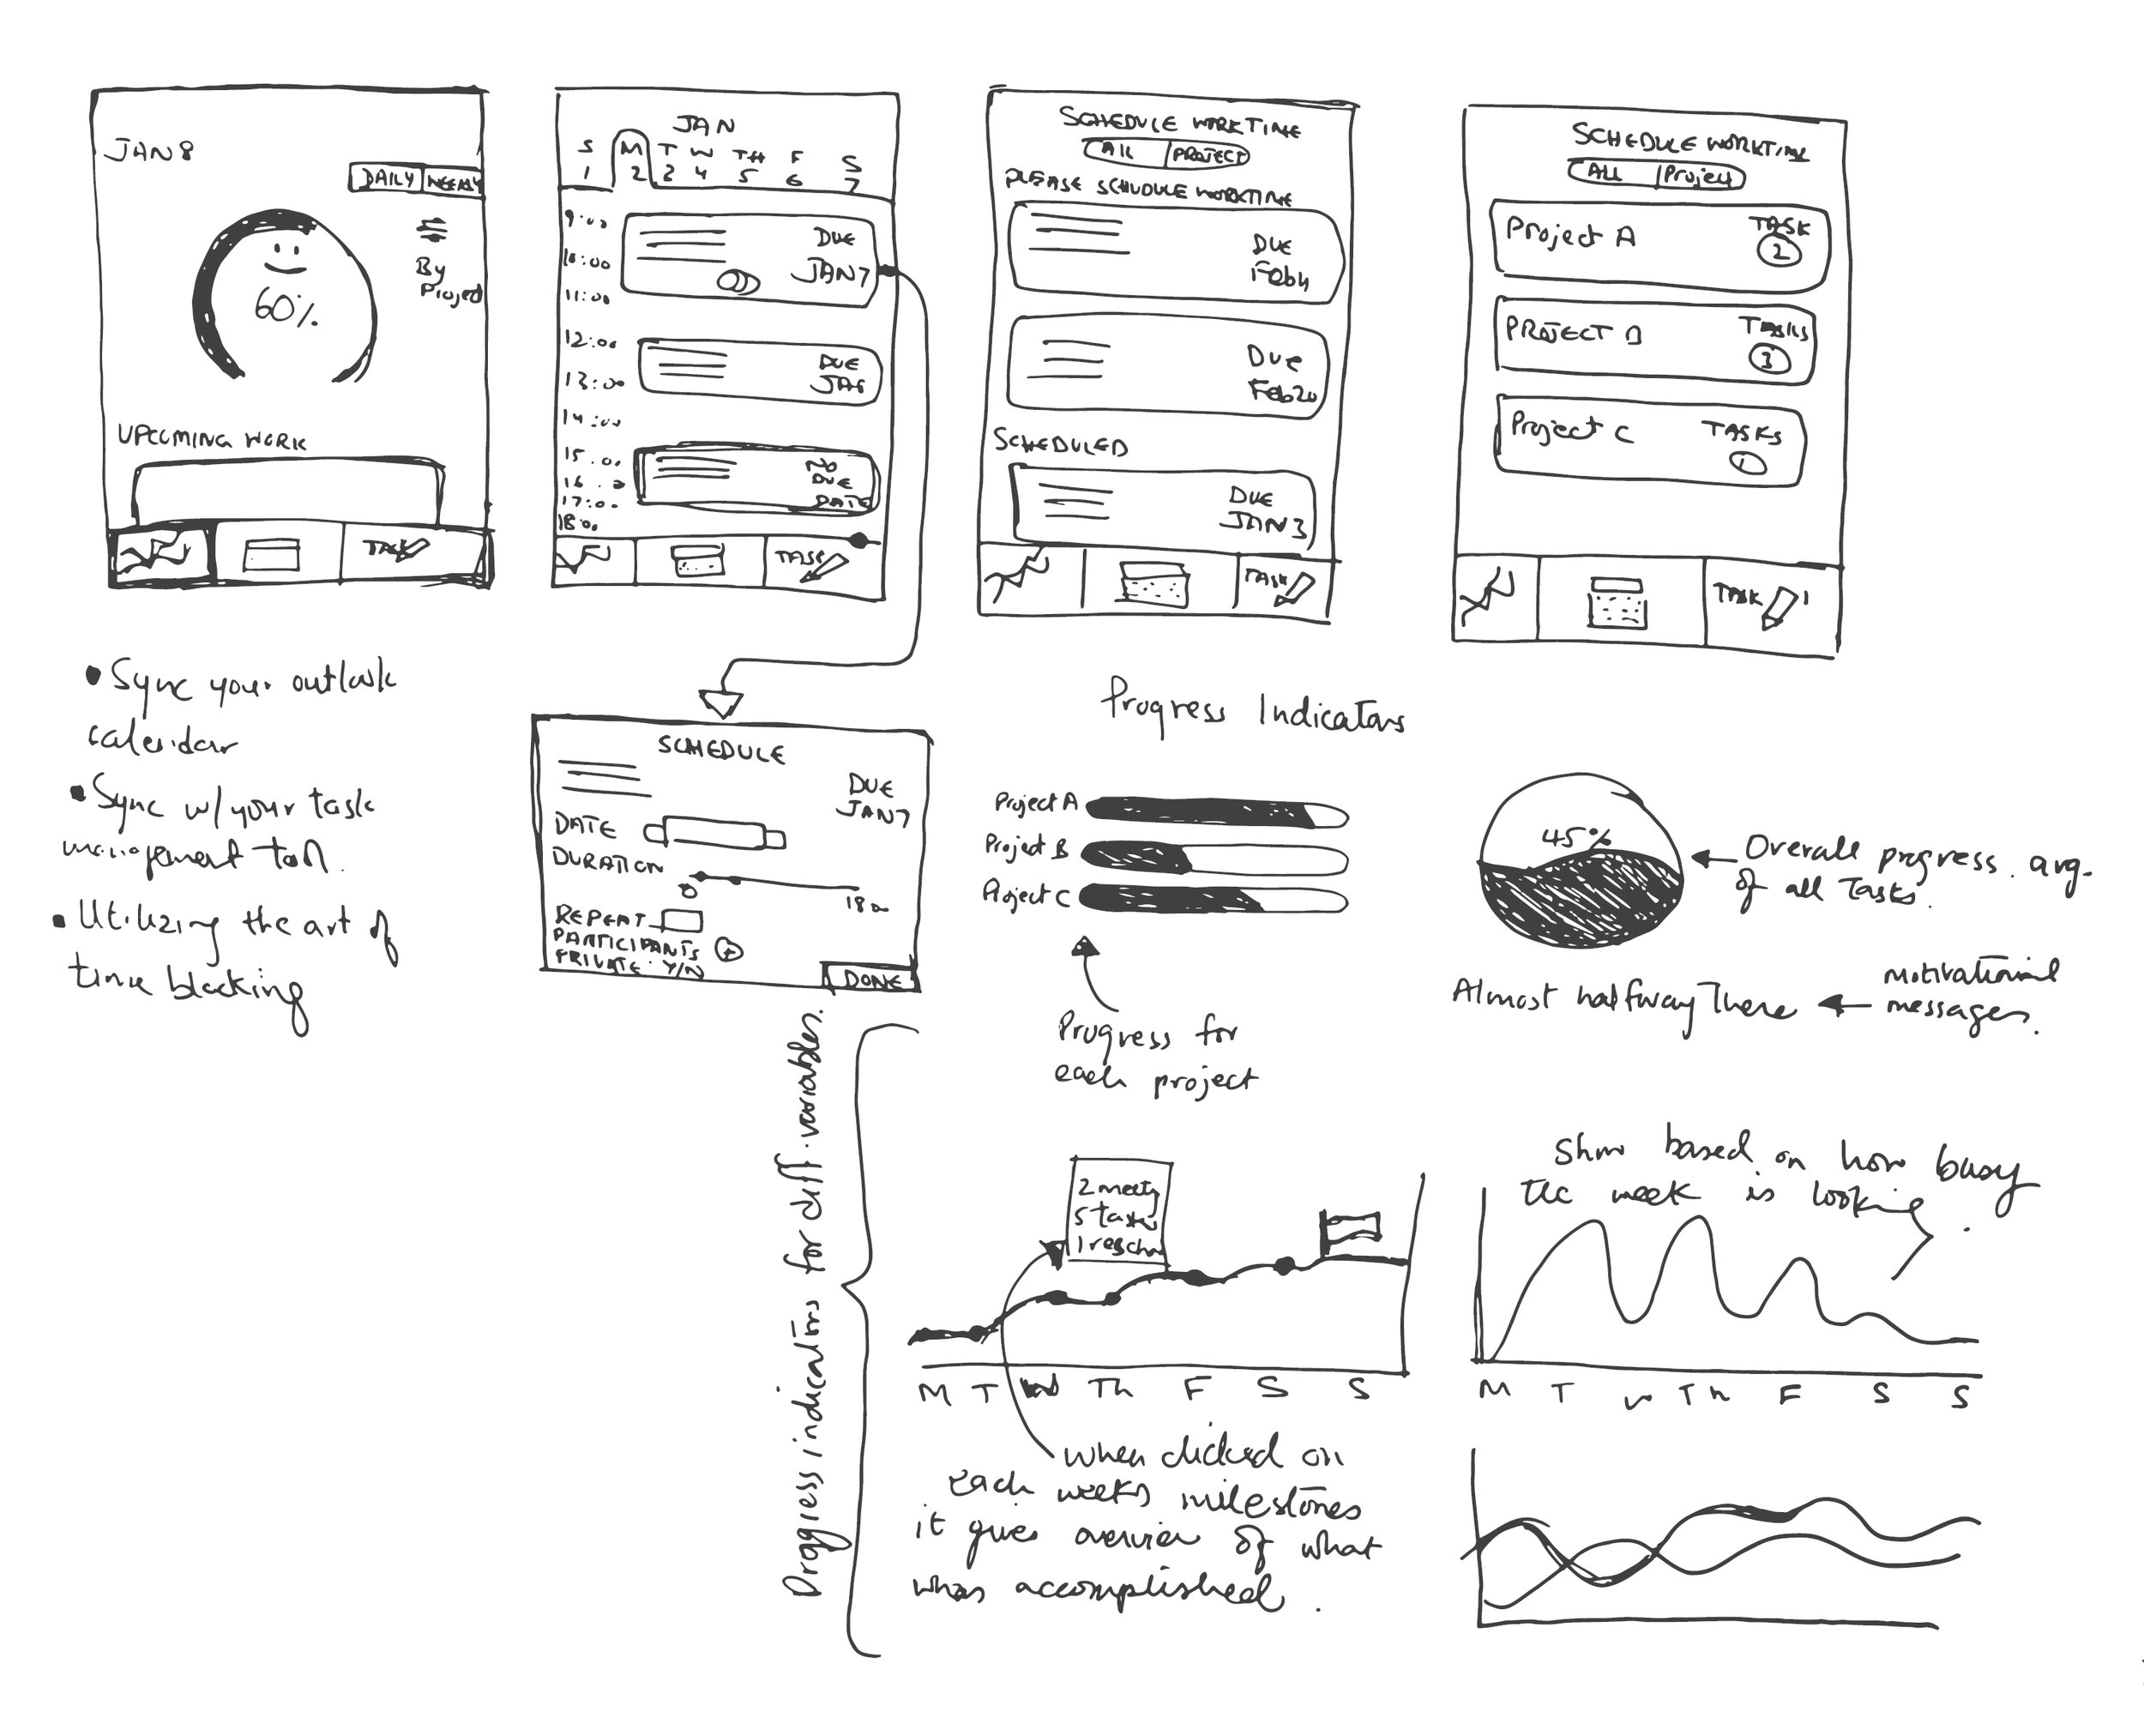 JAN 8
DAILY WEEKLY
By
Project
60%
UPCOMING WORK
TASK
JAN
S M T W TH F S
1 2 3 4 5 6 7
9:00
10:00
11:00
12:00
13:00
14:00
15:00
17:00
18:00
DUE
JAN 7
DUE
NO
DUE
DATE
TASK
SCHEDULE WORKTIME
All PROJECT
PLEASE SCHUDULE WORKTIME
DUE
Feb 4
Due
Feb 20
SCHEDULED
DUE
JAN 3
TASK
SCHEDULE WORKTIME
ALL Project
Project A TASK
2
PROJECT B TASKS
3
Project C TASKS
1
TASK
• Sync your outlook
calendar
• Sync w/ your task
management tool.
• Utilizing the art of
time blocking
SCHEDULE
DUE
JAN 7
DATE
DURATION
REPEAT
PARTICIPANTS +
PRIVATE: Y/N
DONE
Progress Indicators
Project A
Project B
Project C
Progress for
each project
45%
Overall progress. avg.
of all Tasks.
Almost halfway There
motivational
messages.
Progress indicators for diff. variables.
2 meetg
5 tasks
1 resch
M T W Th F S S
when clicked on
each weeks milestones
it gives overview of what
was accomplished.
Show based on how busy
the week is looking.
M T W Th F S S